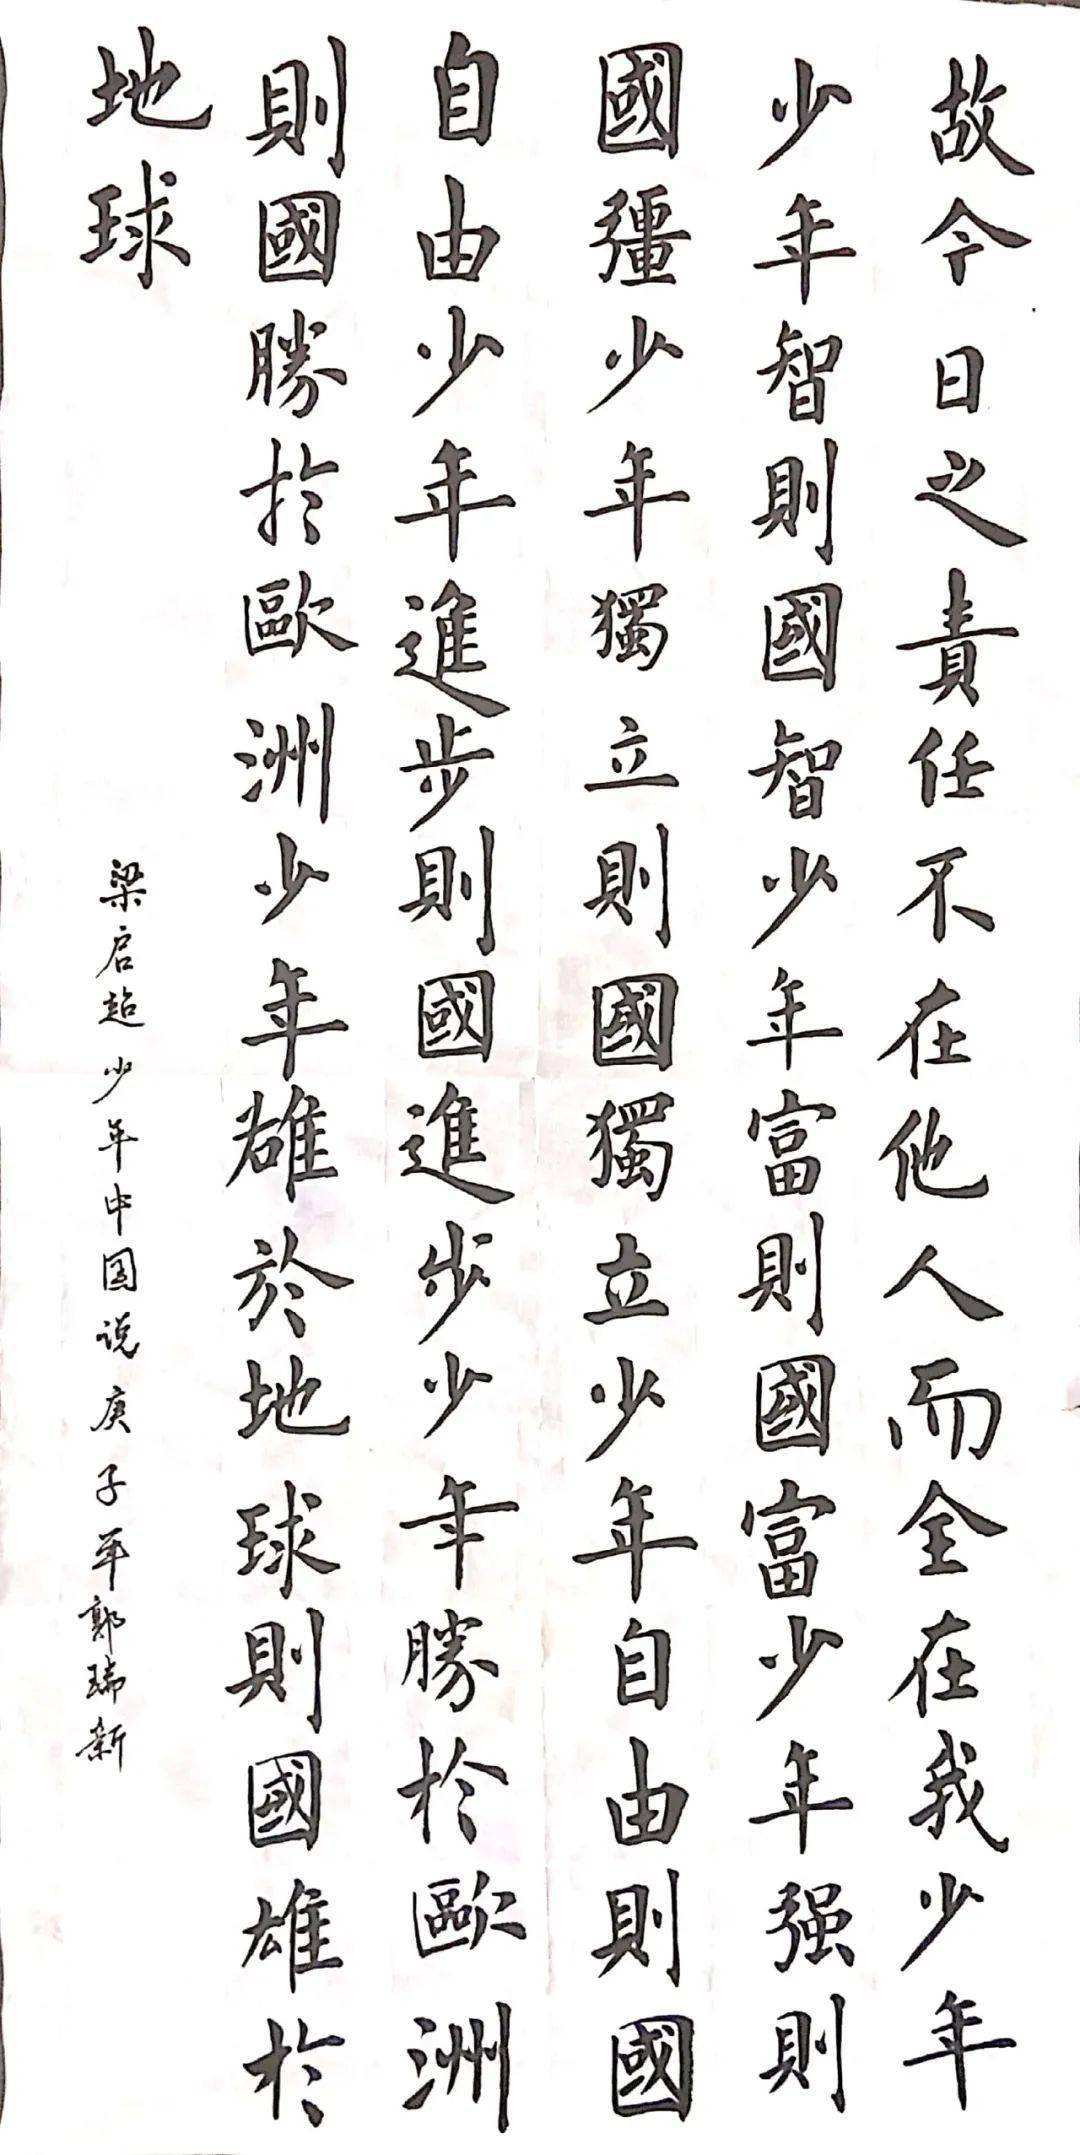 故今日之責任不在他人而全在我少年
少年智則國智少年富則國富少年强則
國彊少年獨立則國獨立少年自由則國
自由少年進步則國進步少年勝於歐洲
則國勝於歐洲少年雄於地球則國雄於
地球
梁启超少年中国说庚子年郭瑞新